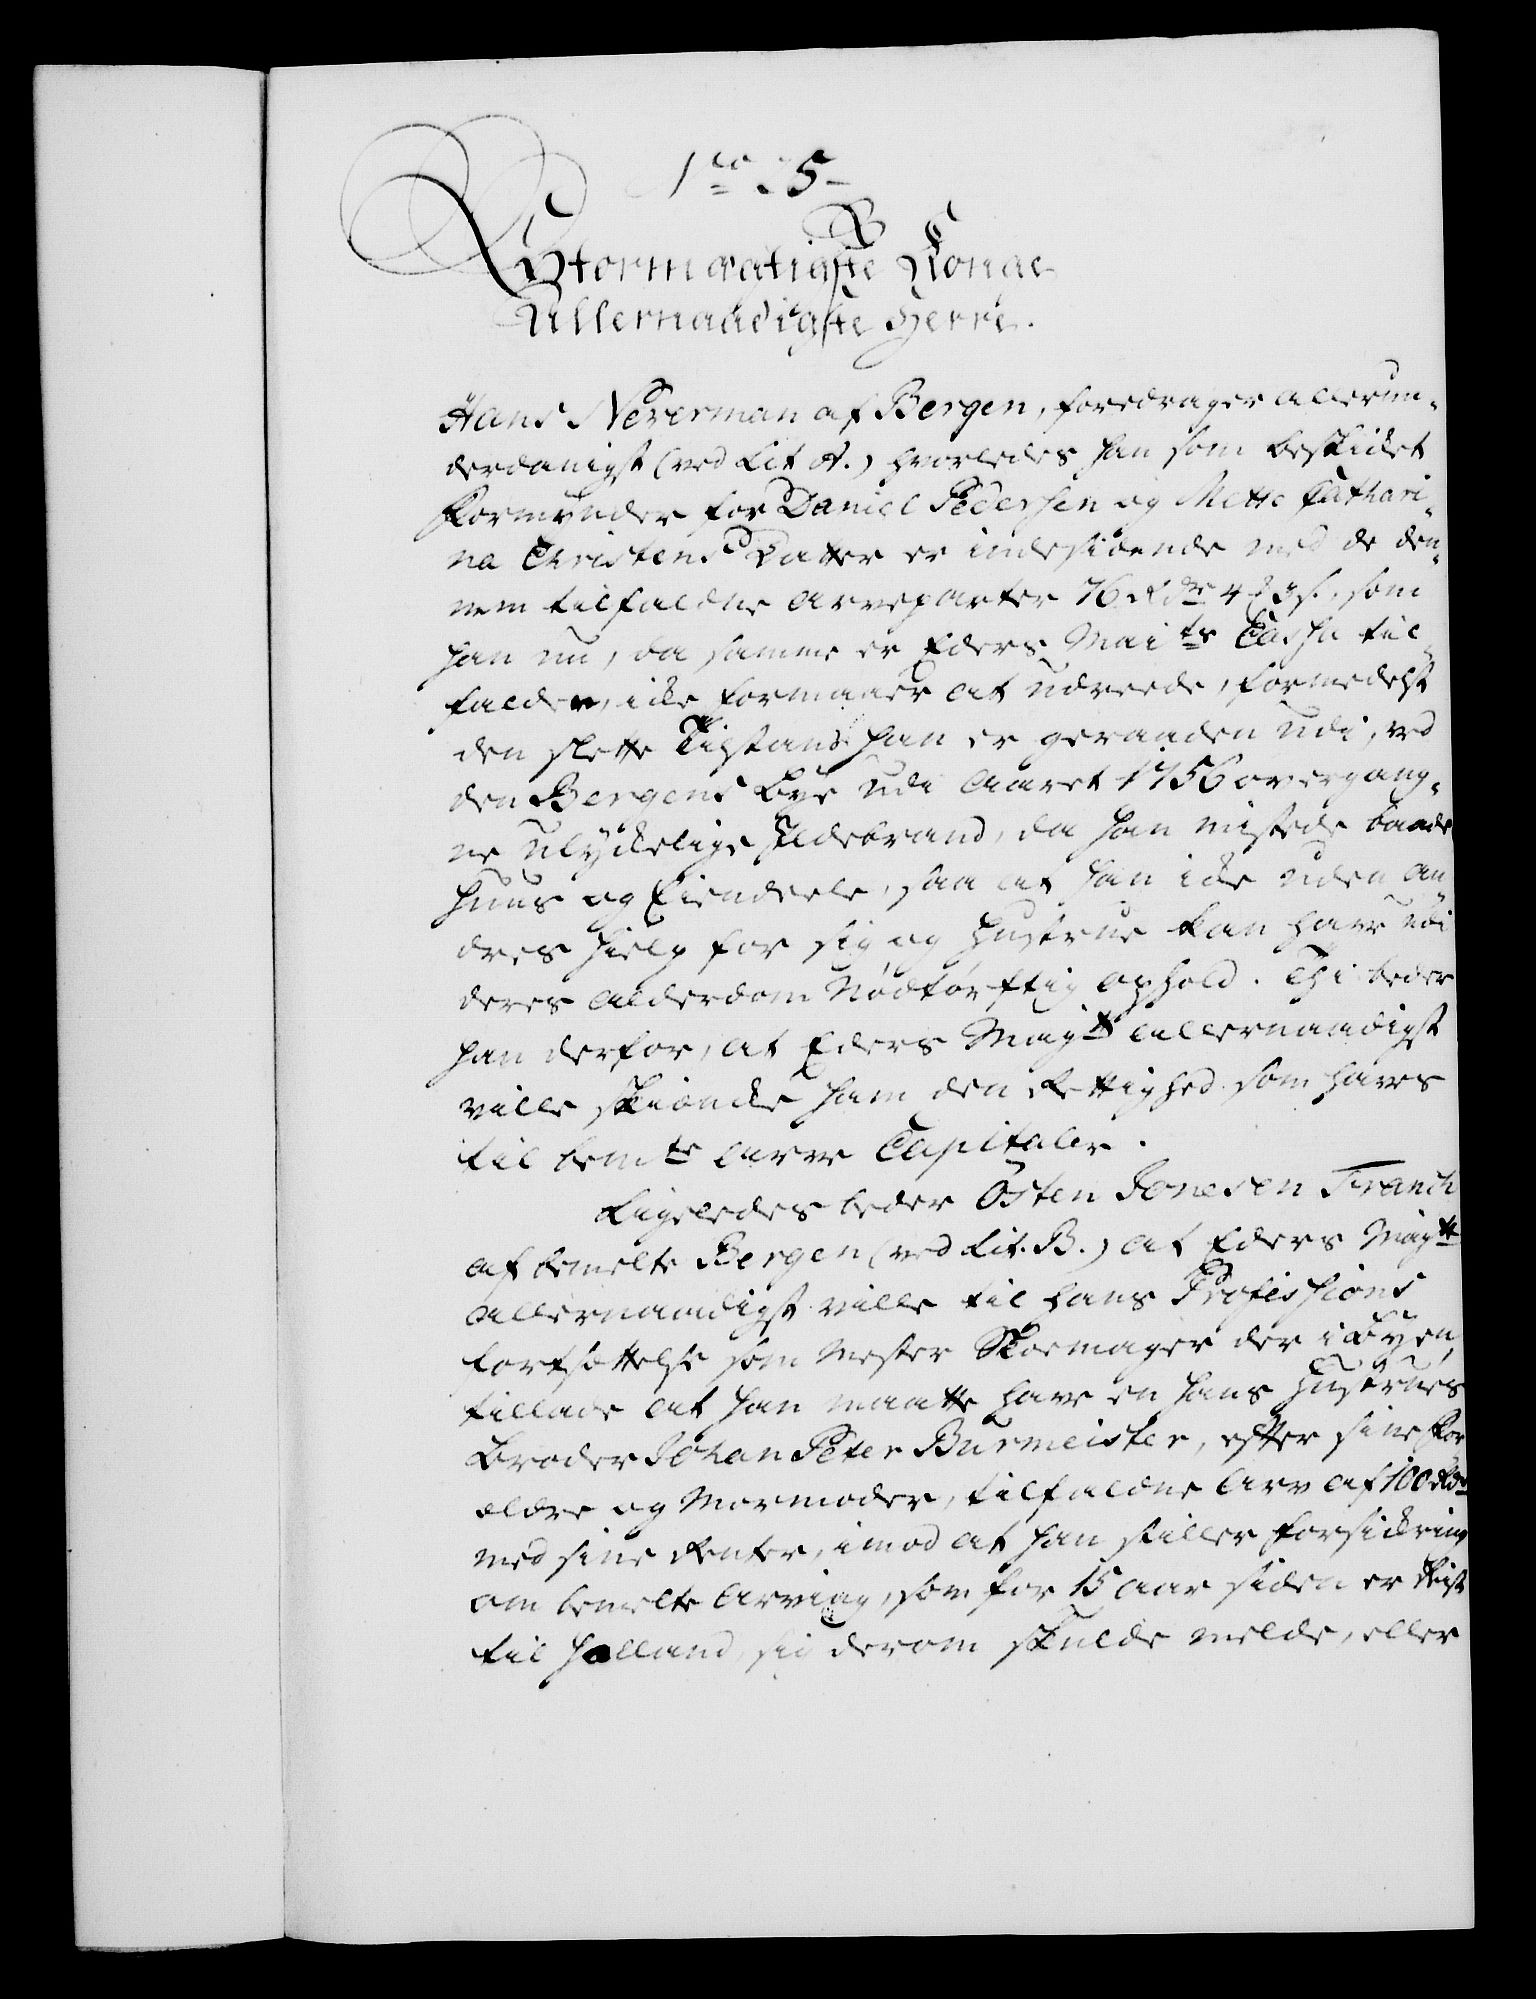 No 25
Stormægtigste Konge
Allernaadigste Herre.
Hans Neverman af Bergen, foredrager allerun-
derdanigst (ved Lit A.) hvorledes han som beskicket
Formynder for Daniel Pedersen og Mette Cathari-
na Christens Datter er indestaaende med de den-
nem tilfaldne Arveparter 76 Rdr 4 ß, som
han nu, da samme er Eders Maits Cassa til-
falden, icke formaaer at udreede, formedelst
den slette Tilstand han er geraaden udi, ved
den Bergens Bye udi Aaret 1756 overgang-
ne ulyckelige Ildebrand, da han mistede baade
Huus og Eiendeele, saa at han icke uden an-
dres hielp for sig og Hustrue kan have udi
deres Alderdom Nødtørftig Ophold. Thi beder
han derfor, at Eders Maytt allernaadigst
ville skiencke ham den Rettighed som haves
til bemte Arve Capitaler.
Ligeledes beder Østen Jonesen Franck
af bemelte Bergen (ved Lit. B.) at Eders Maytt
allernaadigst ville til hans Professions
fortsættelse som Mester Skoemager der i Byen,
tillade at han maatte have en hans Hustrues
Broder Johan Peter Burmeister, efter sine For
ældre og Mormoder, tilfaldne Arv af 100 Rdr
med sine Renter, imod at han stiller forsickring
om bemelte Arving, som for 15 Aar siden er reist
til Holland, sig derom skulde melde, eller